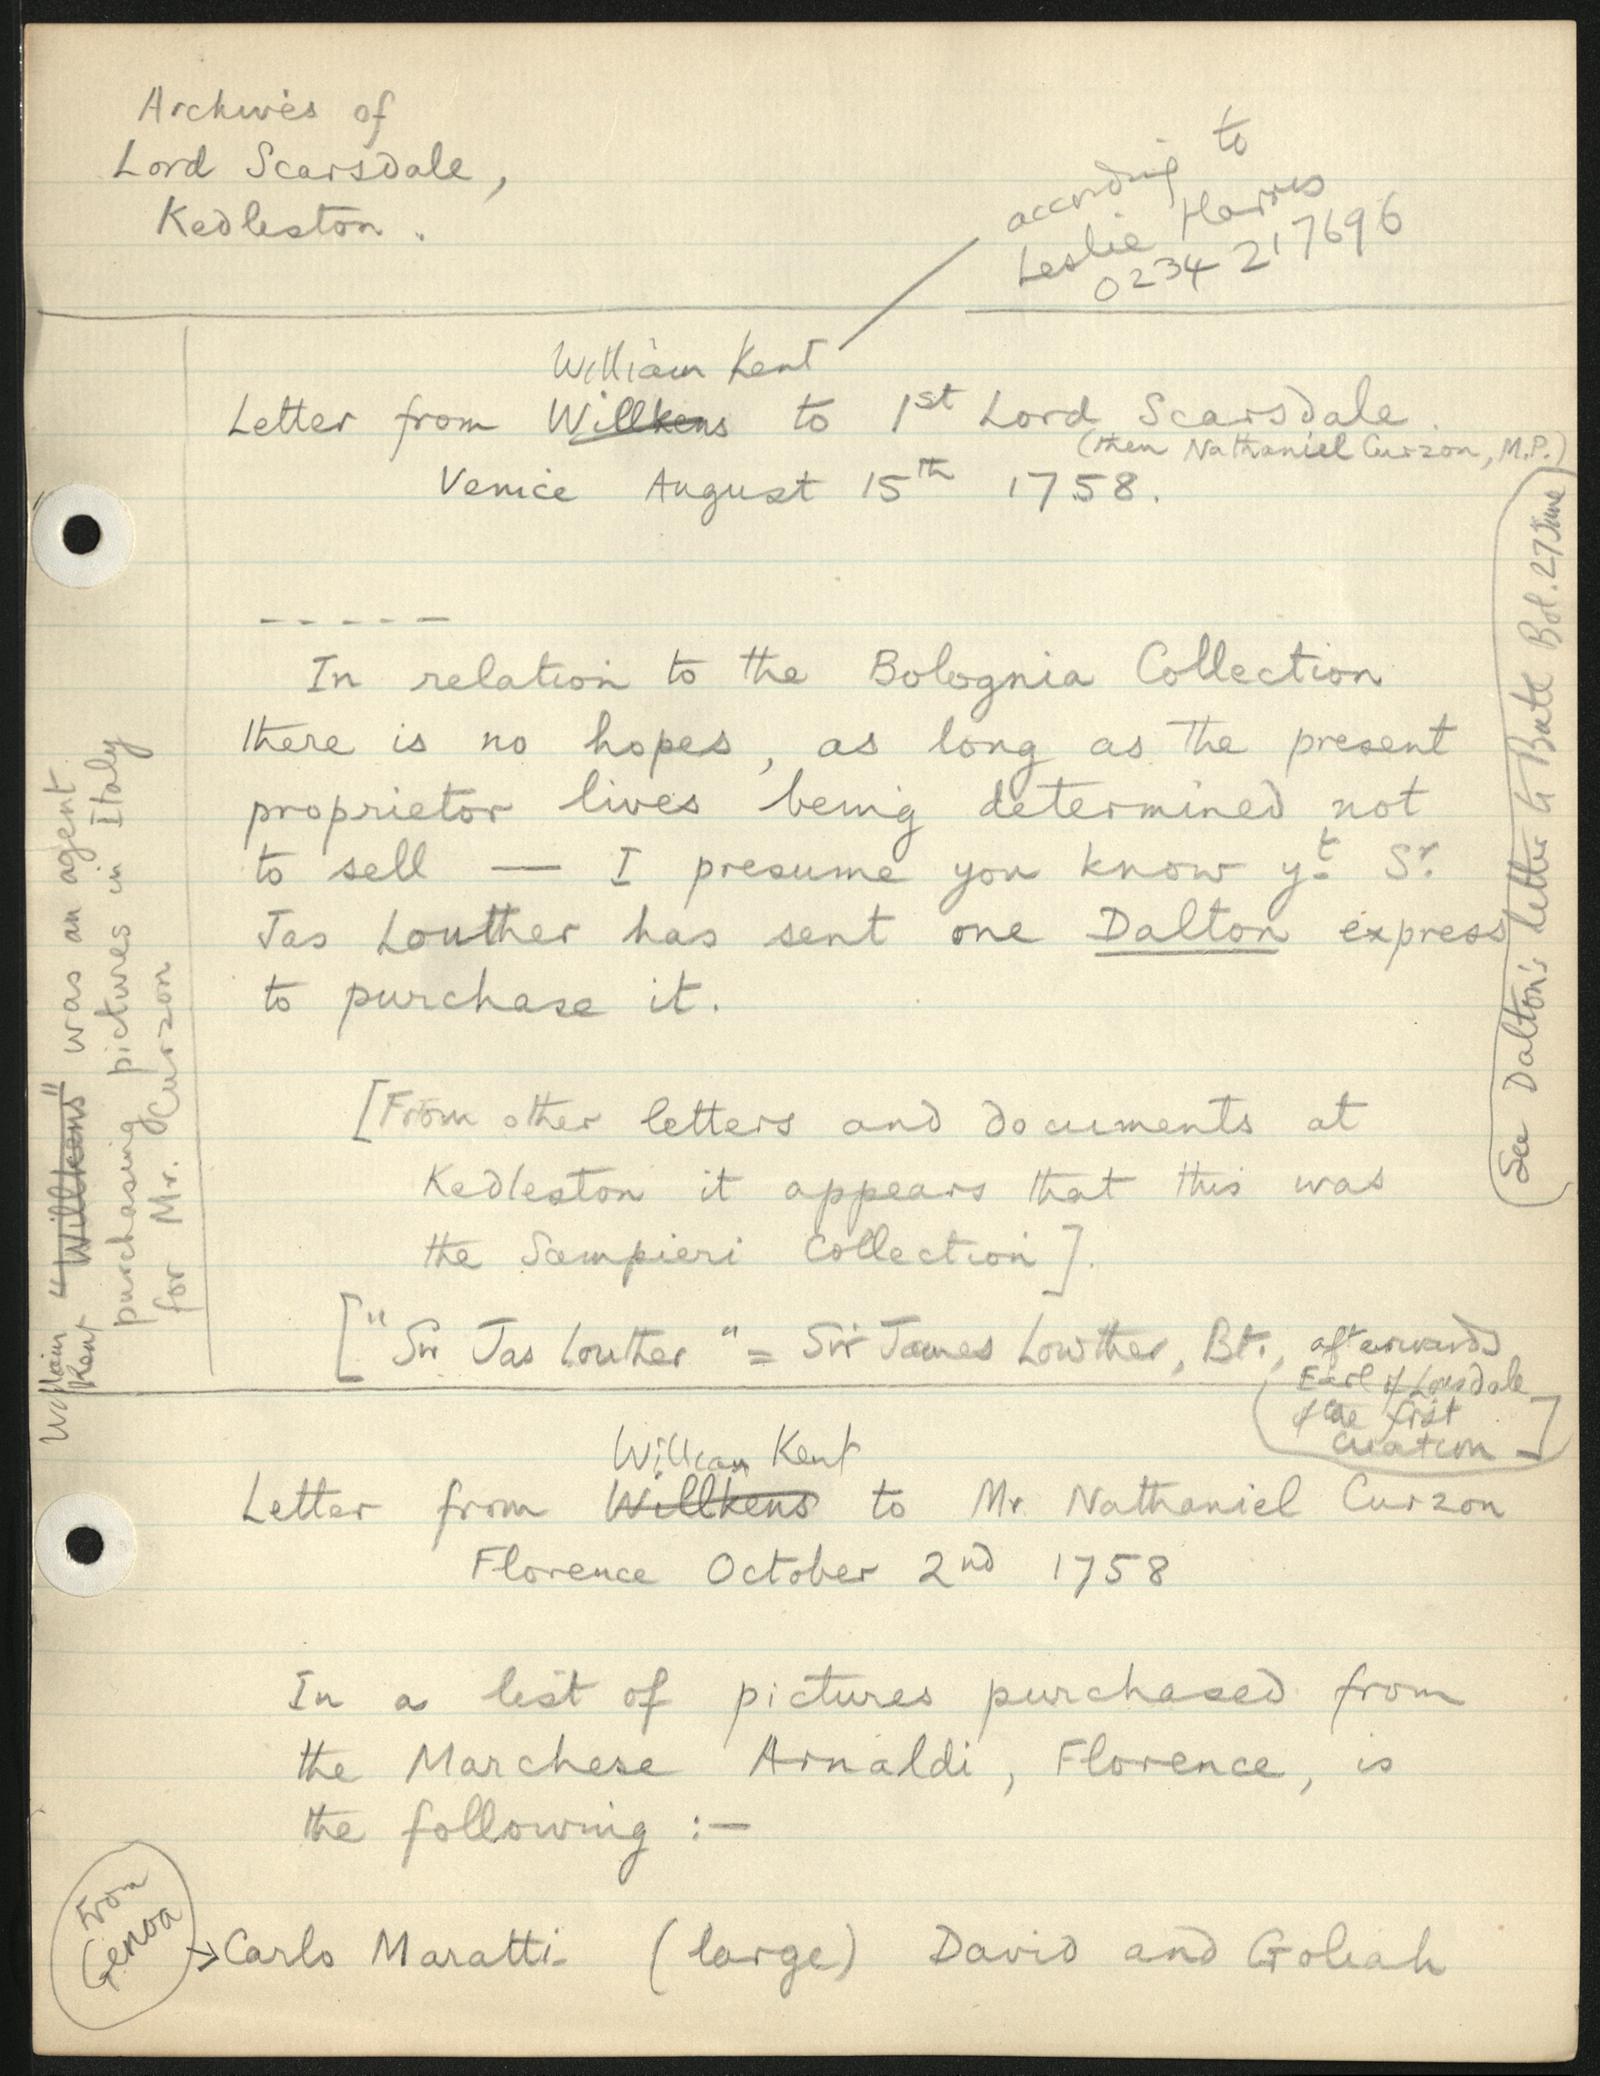 Archives of
Lord Scarsdale,
Kedleston.
according to
Leslie Harris
0234 217696
William Kent
Letter from Willkens to 1st Lord Scarsdale.
(then Nathaniel Curzon, M.P.)
Venice August 15th 1758.
- - - - -
In relation to the Bolognia Collection
there is no hopes, as long as the present
proprietor lives being determined not
to sell — I presume you know yt Sr.
Jas Louther has sent one Dalton express
to purchase it.
[From other letters and documents at
Kedleston it appears that this was
the Sampieri Collection].
["Sir Jas Louther" = Sir James Lowther, Bt., afterwards
Earl of Lonsdale
of the first
creation]
See Dalton's letter to Bute Bol. 27 June
William Kent "Willkens" was an agent
purchasing pictures in Italy
for Mr. Curzon
William Kent
Letter from Willkens to Mr. Nathaniel Curzon
Florence October 2nd 1758
In a list of pictures purchased from
the Marchese Arnaldi, Florence, is
the following :—
From
Genoa
→ Carlo Maratti- (large) David and Goliah